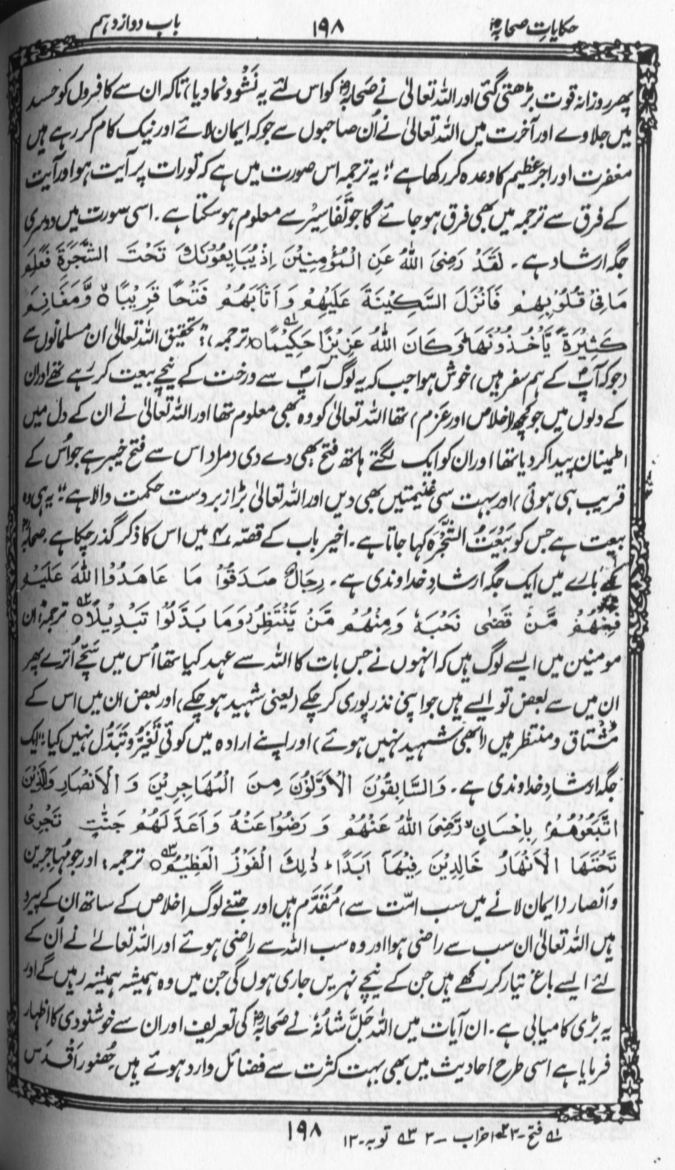 حکایاتِ صحابہؓ ۱۹۸ باب دوازدہم
پھر روزانہ قوت بڑھتی گئی اور اللہ تعالیٰ نے صحابہؓ کو اس لئے یہ نشوونما دیا) تاکہ ان سے کافروں کو حسد
میں جلاوے اور آخرت میں اللہ تعالیٰ نے اُن صاحبوں سے جو کہ ایمان لائے اور نیک کام کر رہے ہیں
مغفرت اور اجرِ عظیم کا وعدہ کر رکھا ہے" یہ ترجمہ اس صورت میں ہے کہ تورات پر آیت ہو اور آیت
کے فرق سے ترجمہ میں بھی فرق ہو جائے گا جو تفاسیر سے معلوم ہو سکتا ہے۔ اسی سورت میں دوسری
جگہ ارشاد ہے۔ لَقَدْ رَضِیَ اللّٰہُ عَنِ الْمُؤْمِنِیْنَ اِذْ یُبَایِعُوْنَکَ تَحْتَ الشَّجَرَۃِ فَعَلِمَ
مَا فِیْ قُلُوْبِھِمْ فَاَنْزَلَ السَّکِیْنَۃَ عَلَیْھِمْ وَاَثَابَھُمْ فَتْحًا قَرِیْبًا ہ وَّمَغَانِمَ
کَثِیْرَۃً یَّاْخُذُوْنَھَا وَکَانَ اللّٰہُ عَزِیْزًا حَکِیْمًا ہ (ترجمہ) "تحقیق اللہ تعالیٰ ان مسلمانوں سے
(جو کہ آپؐ کے ہم سفر ہیں) خوش ہوا جب کہ یہ لوگ آپؐ سے درخت کے نیچے بیعت کر رہے تھے اور ان
کے دلوں میں جو کچھ (اخلاص اور عزم) تھا اللہ تعالیٰ کو وہ بھی معلوم تھا اور اللہ تعالیٰ نے ان کے دل میں
اطمینان پیدا کر دیا تھا اور ان کو ایک لگتے ہاتھ فتح بھی دے دی (مراد اس سے فتح خیبر ہے جو اُس کے
قریب ہی ہوئی) اور بہت سی غنیمتیں بھی دیں اور اللہ تعالیٰ بڑا زبردست حکمت والا ہے" یہ ہی وہ
بیعت ہے جس کو بَیْعَتُ الشَّجَرَہ کہا جاتا ہے۔ اخیر باب کے قصہ ۴ میں اس کا ذکر گذر چکا ہے۔ صحابہؓ
کے بارے میں ایک جگہ ارشادِ خداوندی ہے۔ رِجَالٌ صَدَقُوْا مَا عَاھَدُوا اللّٰہَ عَلَیْہِ
فَمِنْھُمْ مَّنْ قَضٰی نَحْبَہٗ وَمِنْھُمْ مَّنْ یَّنْتَظِرُ وَمَا بَدَّلُوْا تَبْدِیْلًا ہ ترجمہ: ان
مومنین میں ایسے لوگ ہیں کہ انہوں نے جس بات کا اللہ سے عہد کیا تھا اُس میں سچے اُترے پھر
ان میں سے بعض تو ایسے ہیں جو اپنی نذر پوری کر چکے (یعنی شہید ہو چکے) اور بعض ان میں اس کے
مشتاق و منتظر ہیں (ابھی شہید نہیں ہوئے) اور اپنے ارادہ میں کوئی تَغَیُّر و تَبَدُّل نہیں کیا" ایک
جگہ ارشادِ خداوندی ہے۔ وَالسَّابِقُوْنَ الْاَوَّلُوْنَ مِنَ الْمُھَاجِرِیْنَ وَالْاَنْصَارِ وَالَّذِیْنَ
اتَّبَعُوْھُمْ بِاِحْسَانٍ رَّضِیَ اللّٰہُ عَنْھُمْ وَرَضُوْا عَنْہُ وَاَعَدَّ لَھُمْ جَنّٰتٍ تَجْرِیْ
تَحْتَھَا الْاَنْھَارُ خَالِدِیْنَ فِیْھَا اَبَدًاء ذٰلِکَ الْفَوْزُ الْعَظِیْمُ ہ ترجمہ: اور جو مہاجرین
و انصار (ایمان لانے میں سب امّت سے) مُقَدَّم ہیں اور جتنے لوگ اخلاص کے ساتھ ان کے پیرو
ہیں اللہ تعالیٰ ان سب سے راضی ہوا اور وہ سب اللہ سے راضی ہوئے اور اللہ تعالےٰ نے اُن کے
لئے ایسے باغ تیار کر رکھے ہیں جن کے نیچے نہریں جاری ہوں گی جن میں وہ ہمیشہ ہمیشہ رہیں گے اور
یہ بڑی کامیابی ہے۔ ان آیات میں اللہ جَلَّ شانُہٗ نے صحابہؓ کی تعریف اور ان سے خوشنودی کا اظہار
فرمایا ہے اسی طرح احادیث میں بھی بہت کثرت سے فضائل وارد ہوئے ہیں حُضُورِ اَقْدَس
۱؎ فتح۔ ۳ ۲؎ احزاب۔ ۳ ۳؎ توبہ۔ ۱۳
۱۹۸